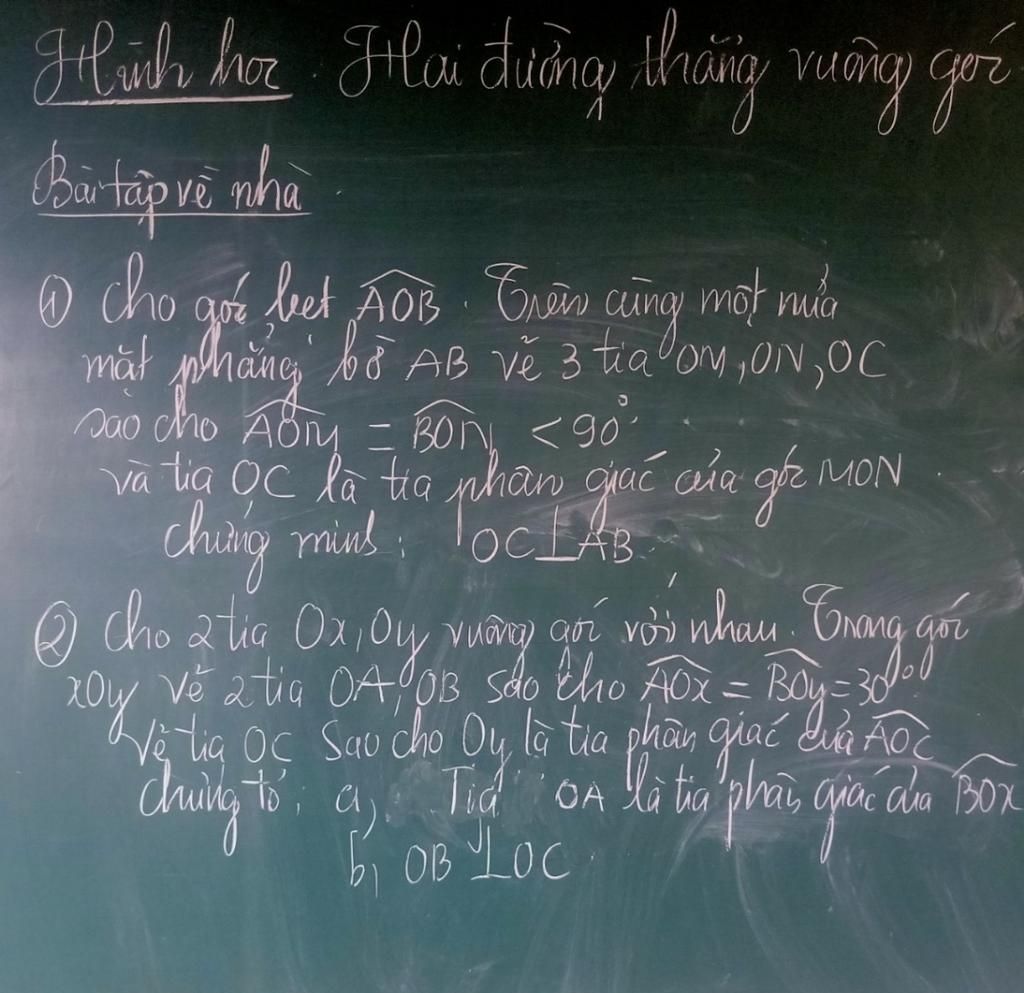 Hình học : Hai đường thẳng vuông góc
Bài tập về nhà
① Cho góc bẹt AOB. Trên cùng một nửa
mặt phẳng bờ AB vẽ 3 tia OM, ON, OC
sao cho AOM = BON < 90°
và tia OC là tia phân giác của góc MON
chứng minh: OC⊥AB
② Cho 2 tia Ox, Oy vuông góc với nhau. Trong góc
xOy vẽ 2 tia OA, OB sao cho AOx = BOy = 30°
Vẽ tia OC sao cho Oy là tia phân giác của AOC
chứng tỏ: a, Tia OA là tia phân giác của BOx
b, OB ⊥ OC